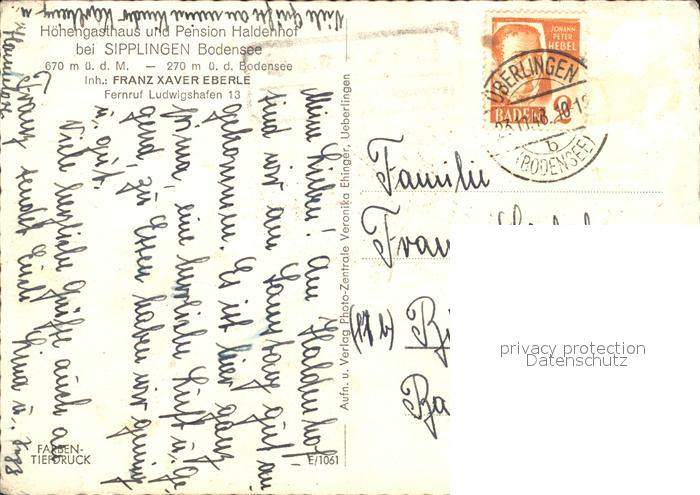 Höhengasthaus und Pension Haldenhof
bei SIPPLINGEN Bodensee
670 m ü. d. M. — 270 m ü. d. Bodensee
Inh.: FRANZ XAVER EBERLE
Fernruf Ludwigshafen 13
Meine Lieben! Am Haldenhof
sind wir am Samstag gut an-
gekommen. Es ist hier ganz
prima, eine herrliche Luft u. Ge-
gend, zu Essen haben wir genug
u. gut.
Viele herzliche Grüße auch an
Franz sendet Euch
Hannelore
Viele Grüße an meine
FARBEN-
TIEFDRUCK
E/1061
Aufn. u. Verlag Photo-Zentrale Veronika Ehinger, Ueberlingen
JOHANN
PETER
HEBEL
BADEN
2
ÜBERLINGEN
b
(BODENSEE)
Familie
Franz
(17b)
privacy protection
Datenschutz